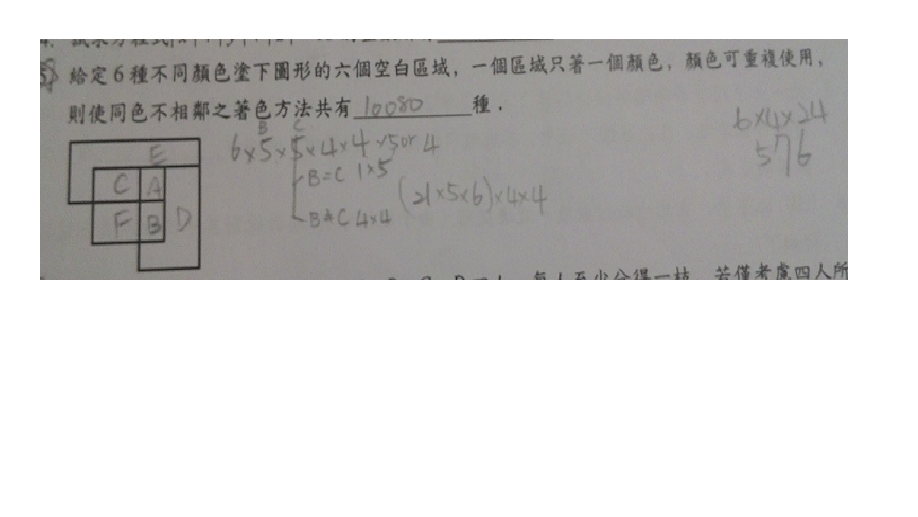 給定6種不同顏色塗下圖形的六個空白區域，一個區域只著一個顏色，顏色可重複使用，
則使同色不相鄰之著色方法共有 10080 種．
B C
6×5×5×4×4×5or4
B=C 1×5
B≠C 4×4
(21×5×6)×4×4
6×4×24
576
E
C A
F B D
每人至少分得一枝，若僅考慮四人所